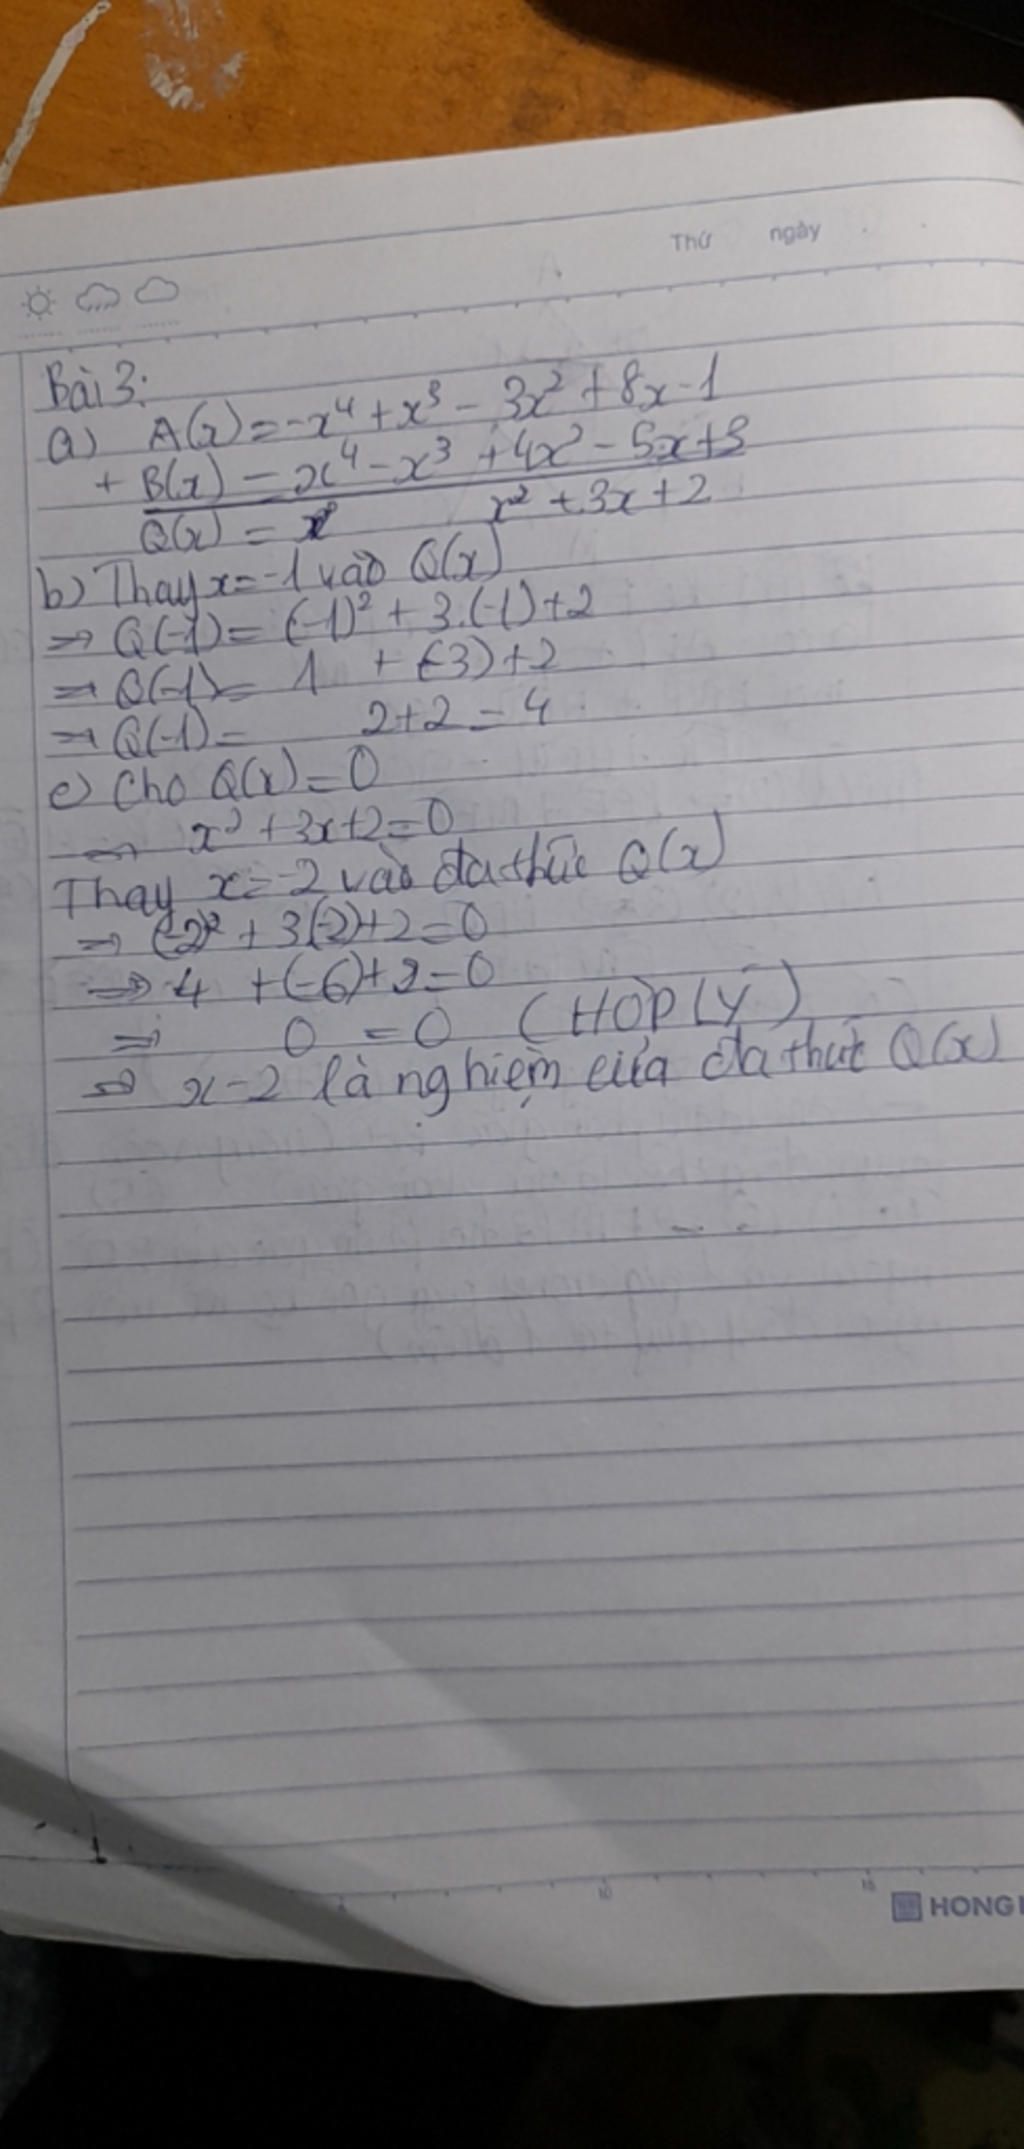 Thứ ngày
Bài 3:
a) A(x) = -x⁴ + x³ - 3x² + 8x - 1
+ B(x) = x⁴ - x³ + 4x² - 5x + 3
Q(x) = x² + 3x + 2
b) Thay x = -1 vào Q(x)
=> Q(-1) = (-1)² + 3.(-1) + 2
=> Q(-1) = 1 + (-3) + 2
=> Q(-1) = 2 + 2 = 4
c) Cho Q(x) = 0
=> x² + 3x + 2 = 0
Thay x = -2 vào đa thức Q(x)
=> (-2)² + 3(-2) + 2 = 0
=> 4 + (-6) + 2 = 0
=> 0 = 0 (HỢP LÝ)
=> x = -2 là nghiệm của đa thức Q(x)
10 15
HONG